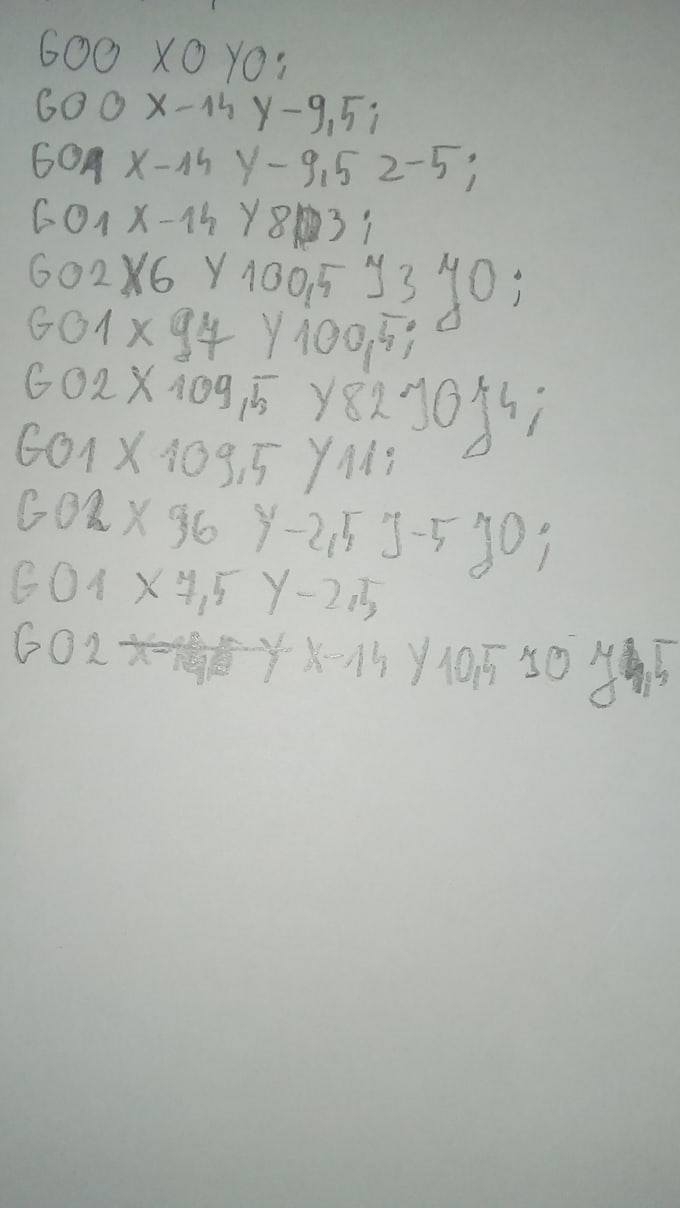 G00 X0 Y0;
G00 X-14 Y-9,5;
G01 X-14 Y-9,5 Z-5;
G01 X-14 Y83;
G02 X6 Y100,5 I3 J0;
G01 X97 Y100,5;
G02 X109,5 Y82 I0 J4;
G01 X109,5 Y11;
G02 X96 Y-2,5 I-5 J0;
G01 X7,5 Y-2,5
G02 X-14 Y10,5 I0 J4,5